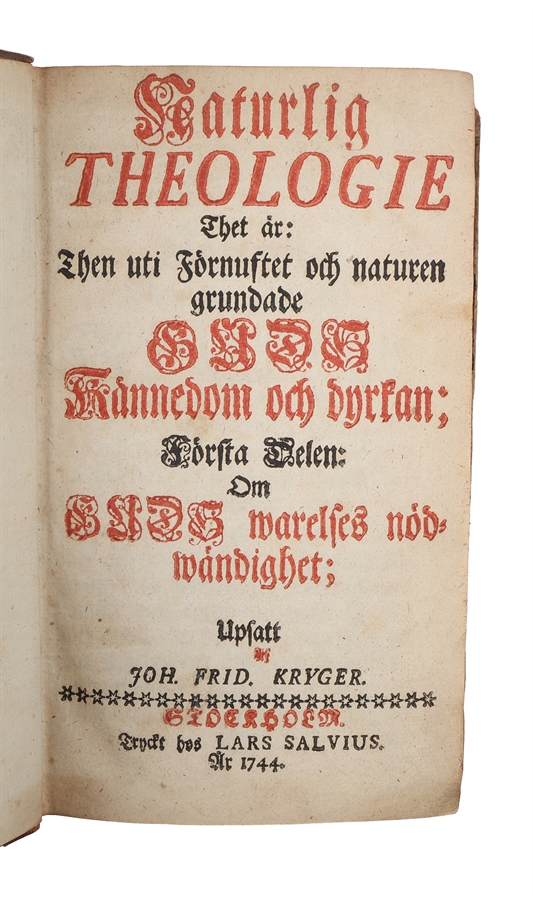 Naturlig
THEOLOGIE
Thet är:
Then uti Förnuftet och naturen
grundade
GUDS
Kännedom och dyrkan;
Första Delen:
Om
GUDS warelses nöd-
wändighet;
Upsatt
af
JOH. FRID. KRYGER.
STOCKHOLM.
Tryckt hos LARS SALVIUS.
År 1744.